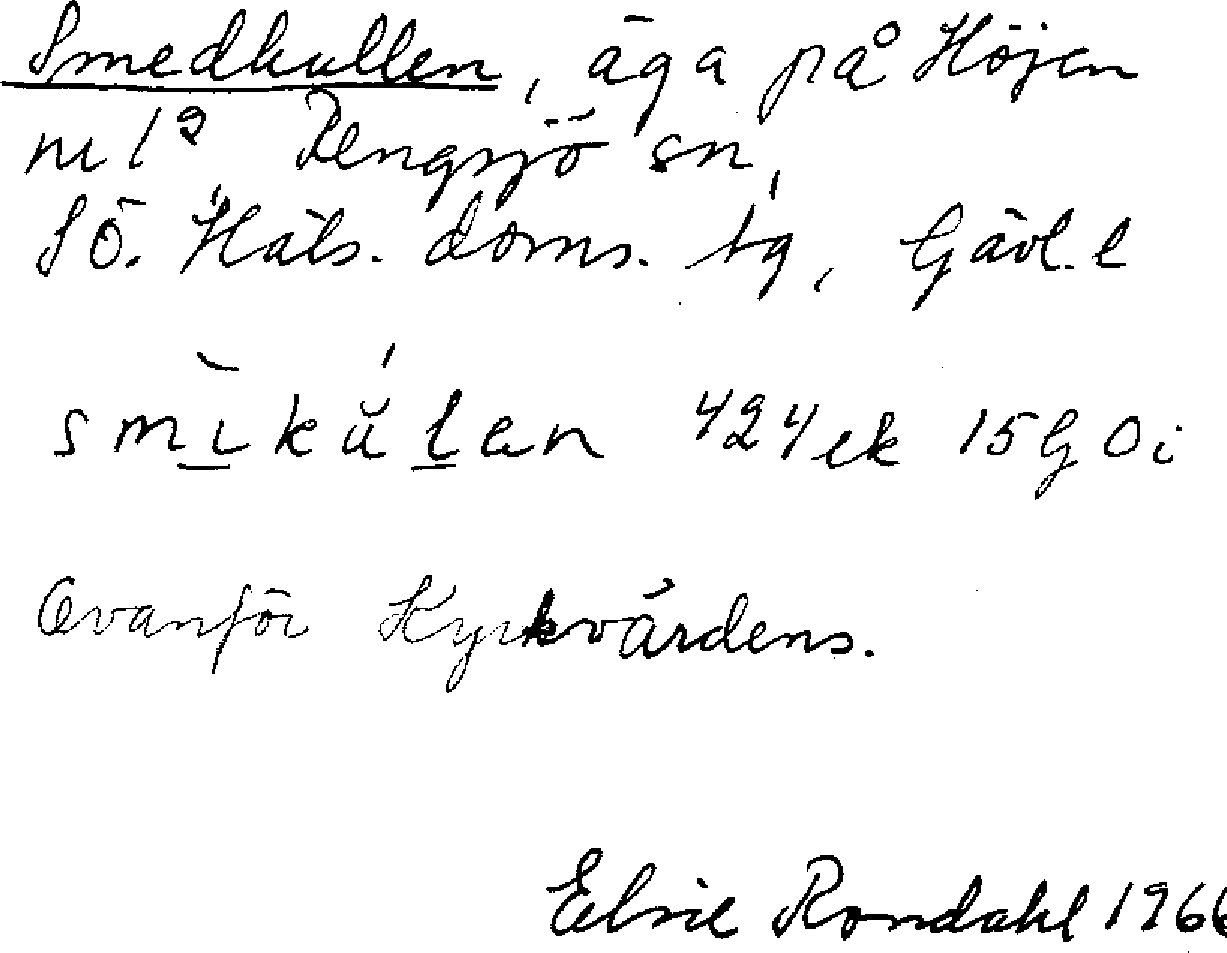 Smedkullen, äga på Höjen
nr 1⁹ Rengsjö sn,
Sö. Häls. doms. tg, Gävl. l
smi̲kŭl̲an 424ek 15G0i
Ovanför Kyrkvärdens.
Elsie Rondahl 1966